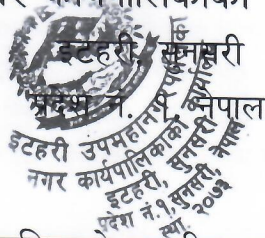 इटहरी, सुनसरी
प्रदेश नं. १, नेपाल
इटहरी उपमहानगरपालिका
नगर कार्यपालिकाको कार्यालय
इटहरी, सुनसरी
प्रदेश नं.१,सुनसरी, नेपाल
स्था. २०७३